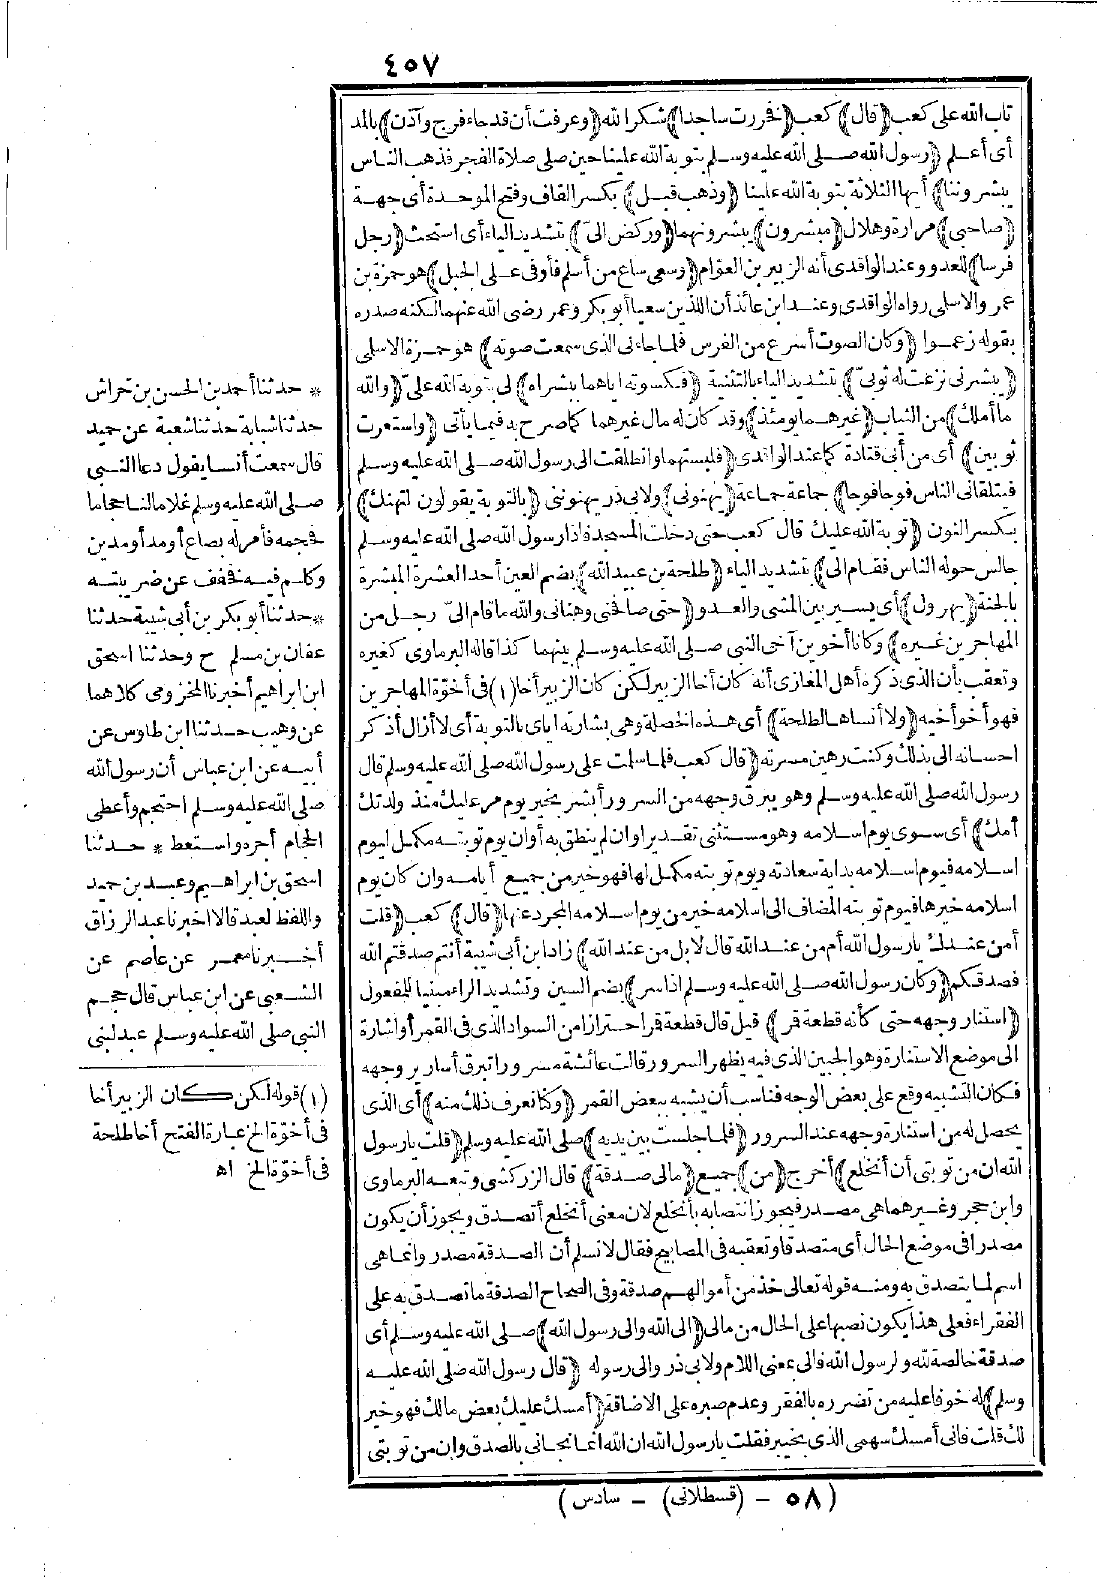 ٤٥٧
تاب الله على كعب (قال) كعب (فخررت ساجدا) شكرا لله (وعرفت أن قد جاء فرج وآذن) بالمد
أى أعلم (رسول الله صلى الله عليه وسلم بتوبة الله علينا حين صلى صلاة الفجر فذهب الناس
يبشروننا) أيها الثلاثة بتوبة الله علينا (وذهب قبل) بكسر القاف وفتح الموحدة أى جهة
(صاحبى) مرارة وهلال (مبشرون) يبشرونهما (وركض الىّ) بتشديد الياء أى استحث (رجل
فرسا) للعدو وعند الواقدى أنه الزبير بن العوّام (وسعى ساع من أسلم فأوفى على الجبل) هو حمزة بن
عمر والاسلمى رواه الواقدى وعند ابن عائذ أن اللذين سعيا أبو بكر وعمر رضى الله عنهما لكنه صدره
بقوله زعموا (وكان الصوت أسرع من الفرس فلما جاءنى الذى سمعت صوته) هو حمزة الاسلمى
(يبشرنى نزعت له ثوبىّ) بتشديد الياء بالتثنية (فكسوته اياهما ببشراه) لى بتوبة الله علىّ (والله
ما أملك) من الثياب (غيرهما يومئذ) وقد كان له مال غيرهما كما صرح به فيما يأتى (واستعرت
ثوبين) أى من أبى قتادة كما عند الواقدى (فلبستهما وانطلقت الى رسول الله صلى الله عليه وسلم
فيتلقانى الناس فوجا فوجا) جماعة جماعة (يهنونى) ولابى ذر يهنوننى (بالتوبة يقولون لتهنك)
بكسر النون (توبة الله عليك قال كعب حتى دخلت المسجد فاذا رسول الله صلى الله عليه وسلم
جالس حوله الناس فقام الى) بتشديد الياء (طلحة بن عبيد الله) بضم العين أحد العشرة المبشرة
بالجنة (يهرول) أى يسير بين المشى والعدو (حتى صافحنى وهنانى والله ما قام الىّ رجل من
المهاجرين غيره) وكانا أخوين آخى النبى صلى الله عليه وسلم بينهما كذا قاله البرماوى كغيره
وتعقب بأن الذى ذكره أهل المغازى أنه كان أخا الزبير لكن كان الزبير أخا (١) فى أخوّة المهاجرين
فهو أخو أخيه (ولا أنساها لطلحة) أى هذه الخصلة وهى بشارته اياى بالتوبة أى لا أزال أذكر
احسانه الى بذلك وكنت رهين مسرته (قال كعب فلما سلمت على رسول الله صلى الله عليه وسلم قال
رسول الله صلى الله عليه وسلم وهو يبرق وجهه من السرور أبشر بخير يوم مر عليك منذ ولدتك
أمك) أى سوى يوم اسلامه وهو مستثنى تقديرا وان لم ينطق به أو ان يوم توبته مكمل ليوم
اسلامه فيوم اسلامه بداية سعادته ويوم توبته مكمل لها فهو خير من جميع أيامه وان كان يوم
اسلامه خيرها فيوم توبته المضاف الى اسلامه خير من يوم اسلامه المجرد عنها (قال) كعب (قلت
أمن عندك يا رسول الله أم من عند الله قال لا بل من عند الله) زاد ابن أبى شيبة أنتم صدقتم الله
فصدقكم (وكان رسول الله صلى الله عليه وسلم اذا سر) بضم السين وتشديد الراء مبنيا للمفعول
(استنار وجهه حتى كأنه قطعة قر) قيل قال قطعة قر احترازا من السواد الذى فى القمر أو اشارة
الى موضع الاستنارة وهو الجبين الذى فيه يظهر السرور قالت عائشة مسرورا تبرق أسارير وجهه
فكان التشبيه وقع على بعض الوجه فناسب أن يشبه ببعض القمر (وكنا نعرف ذلك منه) أى الذى
يحصل له من استنارة وجهه عند السرور (فلما جلست بين يديه) صلى الله عليه وسلم (قلت يا رسول
الله ان من توبتى أن أنخلع) أخرج (من) جميع (مالى صدقة) قال الزركشى وتبعه البرماوى
وابن حجر وغيرهما هى مصدر فيجوز انتصابه بأنخلع لان معنى أنخلع أتصدق ويجوز أن يكون
مصدرا فى موضع الحال أى متصدقا وتعقبه فى المصابيح فقال لا نسلم أن الصدقة مصدر وانما هى
اسم لما يتصدق به ومنه قوله تعالى خذ من أموالهم صدقة وفى الصحاح الصدقة ما تصدق به على
الفقراء فعلى هذا يكون نصبها على الحال من مالى (الى الله والى رسول الله) صلى الله عليه وسلم أى
صدقة خالصة لله ولرسول الله فالى بمعنى اللام ولابى ذر والى رسوله (قال رسول الله صلى الله عليه
وسلم) له خوفا عليه من تضرره بالفقر وعدم صبره على الاضاقة (أمسك عليك بعض مالك فهو خير
لك قلت فانى أمسك سهمى الذى بخيبر فقلت يا رسول الله ان الله انما نجانى بالصدق وان من توبتى
* حدثنا أحمد بن الحسن بن خراش
حدثنا شبابة حدثنا شعبة عن حميد
قال سمعت أنسا يقول دعا النبى
صلى الله عليه وسلم غلاما لنا حجاما
فحجمه فأمر له بصاع أو مد أو مدين
وكلم فيه فخفف عن ضريبته
* حدثنا أبو بكر بن أبى شيبة حدثنا
عفان بن مسلم ح وحدثنا اسحق
ابن ابراهيم أخبرنا المخزومى كلاهما
عن وهيب حدثنا ابن طاوس عن
أبيه عن ابن عباس أن رسول الله
صلى الله عليه وسلم احتجم وأعطى
الحجام أجره واستعط * حدثنا
اسحق بن ابراهيم وعبد بن حميد
واللفظ لعبد قالا اخبرنا عبد الرزاق
أخبرنا معمر عن عاصم عن
الشعبى عن ابن عباس قال حجم
النبى صلى الله عليه وسلم عبد لبنى
(١) قوله لكن كان الزبير أخا
فى أخوّة الخ عبارة الفتح أخا طلحة
فى أخوّة الخ اه
(٥٨ - (قسطلانى) - سادس)